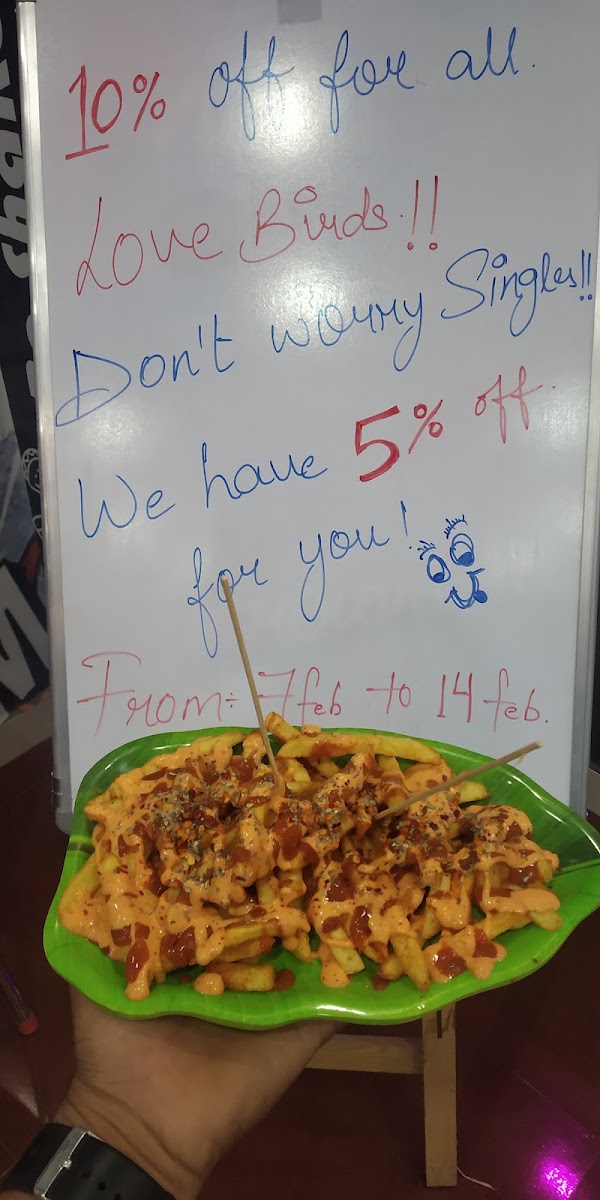 10% off for all.
Love Birds!!
Don't worry Singles!!
We have 5% off.
for you!
From:- 7 feb to 14 feb.